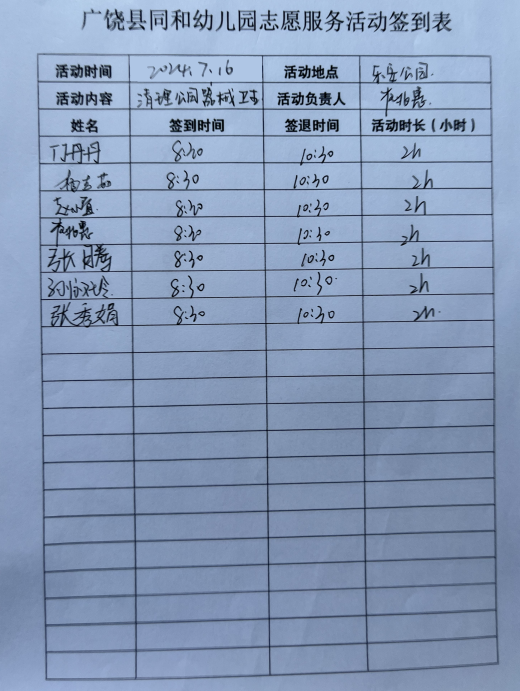 广饶县同和幼儿园志愿服务活动签到表
活动时间 2024.7.16 活动地点 乐安公园.
活动内容 清理公园器械卫生 活动负责人
姓名 签到时间 签退时间 活动时长（小时）
丹丹 8:30 10:30 2h
8:30 10:30 2h
8:30 10:30 2h
8:30 10:30 2h
张 8:30 10:30 2h
8:30 10:30. 2h
张秀娟 8:30 10:30 2h.